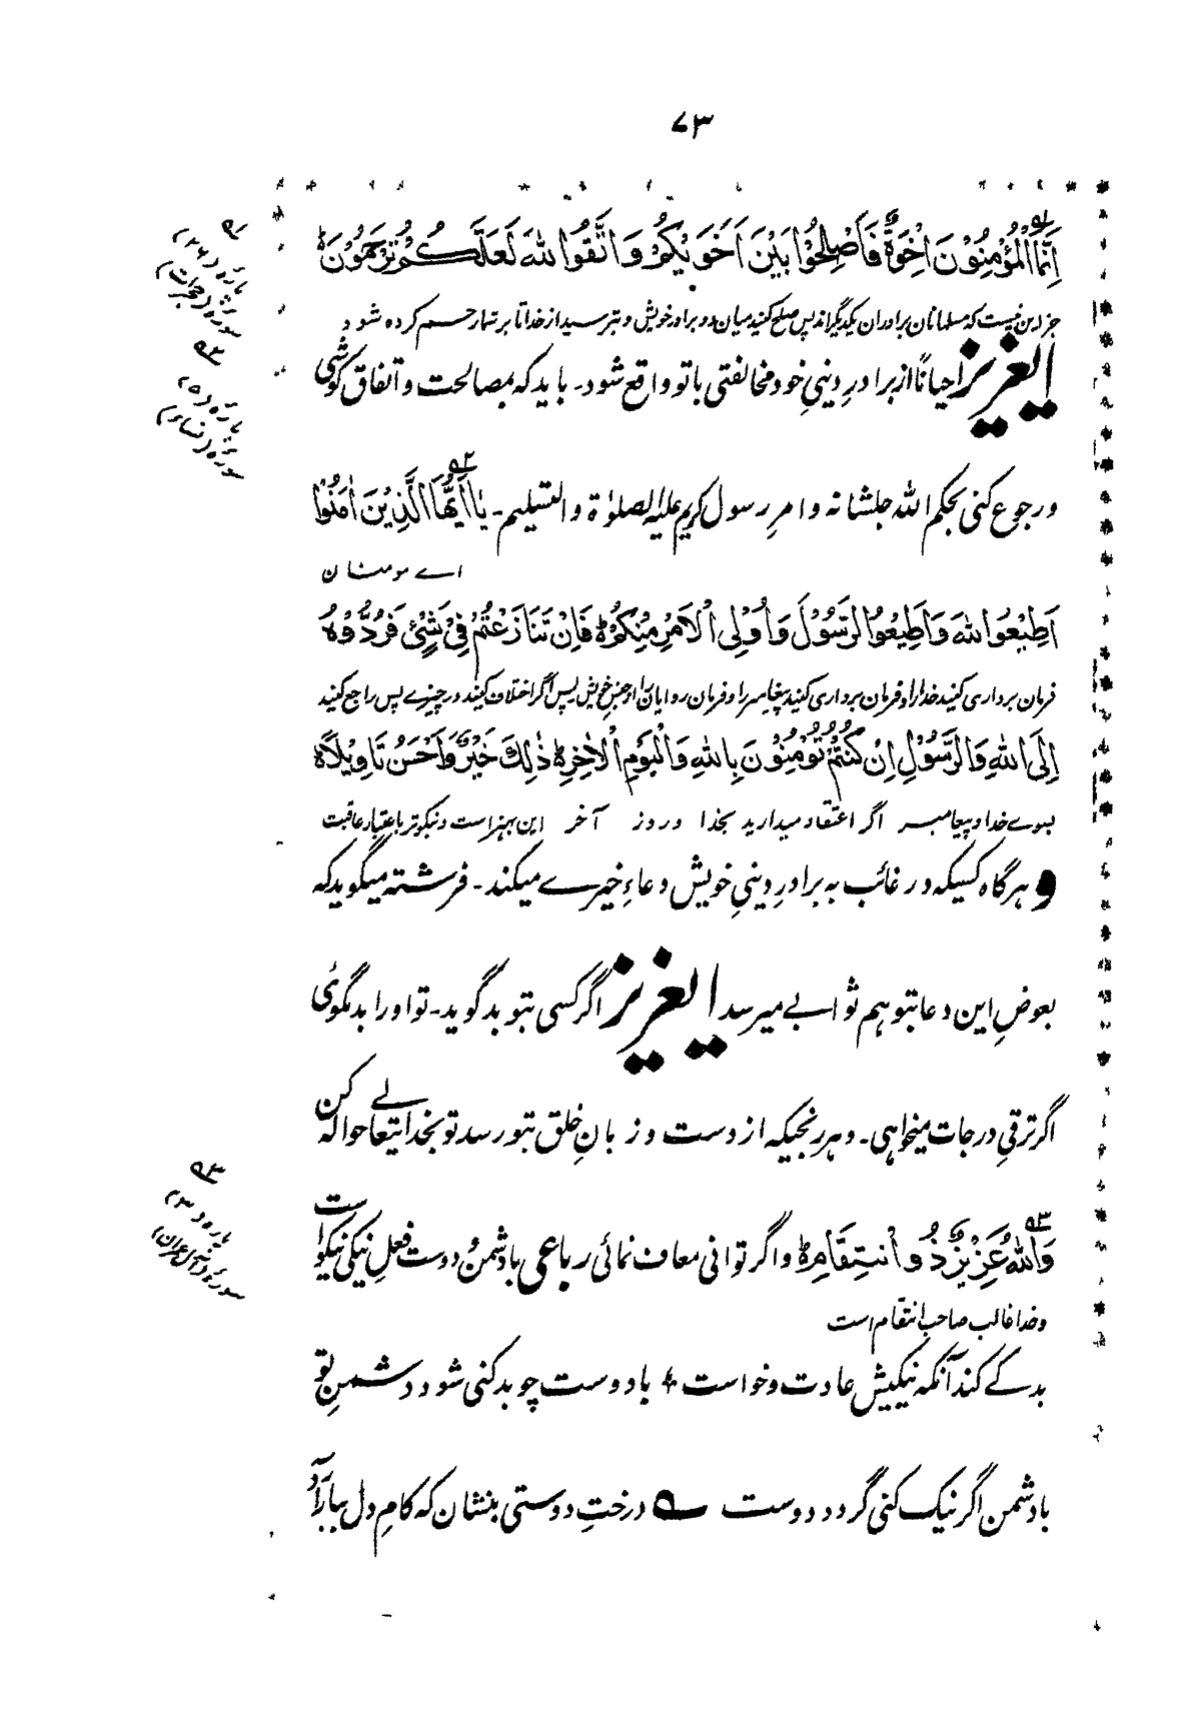 ۷۳
اِنَّمَا الْمُؤْمِنُوْنَ اِخْوَةٌ فَاَصْلِحُوْا بَيْنَ اَخَوَيْكُمْ وَاتَّقُوا اللّٰهَ لَعَلَّكُمْ تُرْحَمُوْنَ ؕ
پارہ (۲۶)
سورۂ (حجرات)
جز این نیست که مسلمانان برادران یکدیگراند پس صلح کنید میان دو برادر خویش و بترسید از خدا تا بر شما رحم کرده شود
ایعزیز احیاناً از برادرِ دینیِ خود مخالفتی باتو واقع شود۔ باید که بمصالحت و اتفاق کوشی
پارہ (۵)
سورۂ (نساء)
و رجوع کنی بحکم الله جلشانه و امرِ رسول کریم علیہ الصلوٰۃ والتسلیم۔ يٰۤا اَيُّهَا الَّذِيْنَ اٰمَنُوْا
اے مومنان
اَطِيْعُوا اللّٰهَ وَاَطِيْعُوا الرَّسُوْلَ وَاُولِى الْاَمْرِ مِنْكُمْ ؕ فَاِنْ تَنَازَعْتُمْ فِىْ شَىْءٍ فَرُدُّوْهُ
فرمان برداری کنید خدا را و فرمان برداری کنید پیغامبر را و فرمان روایان را از جنس خویش پس اگر اختلاف کنید در چیزے پس راجع کنید
اِلَى اللّٰهِ وَالرَّسُوْلِ اِنْ كُنْتُمْ تُؤْمِنُوْنَ بِاللّٰهِ وَالْيَوْمِ الْاٰخِرِ ؕ ذٰلِكَ خَيْرٌ وَّاَحْسَنُ تَاْوِيْلًا ؕ
بسوے خدا و پیغامبر اگر اعتقاد میدارید بخدا و روز آخر این بهتر است و نیکوتر باعتبار عاقبت
و هرگاه کسیکه در غائب به برادرِ دینیِ خویش دعاءِ خیرے میکند۔ فرشته میگوید که
بعوضِ این دعا بتو هم ثوابے میرسد ایعزیز اگر کسی بتو بد گوید۔ تو او را بد مگوئی
اگر ترقیِ درجات میخواهی۔ و هر رنجیکه از دست و زبانِ خلق بتو رسد تو بخدایتعالے حواله کن
۵۳
پارہ (۳)
سورۂ (آل عمران)
وَاللّٰهُ عَزِيْزٌ ذُو انْتِقَامٍ ؕ و اگر توانی معاف نمائی رباعی با دشمن و دوست فعلِ نیکی نیکو است
و خدا غالب صاحب انتقام است
بد کے کند آنکه نیکیش عادت و خواست ؛ با دوست چو بد کنی شود دشمنِ تو
با دشمن اگر نیک کنی گردد دوست ؎ درختِ دوستی بنشان که کامِ دل ببار آرد